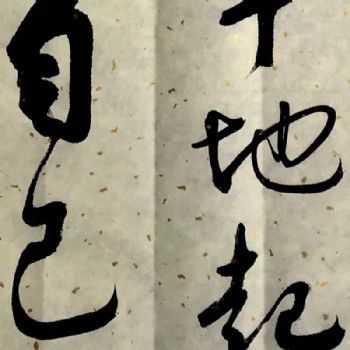 地起
自己